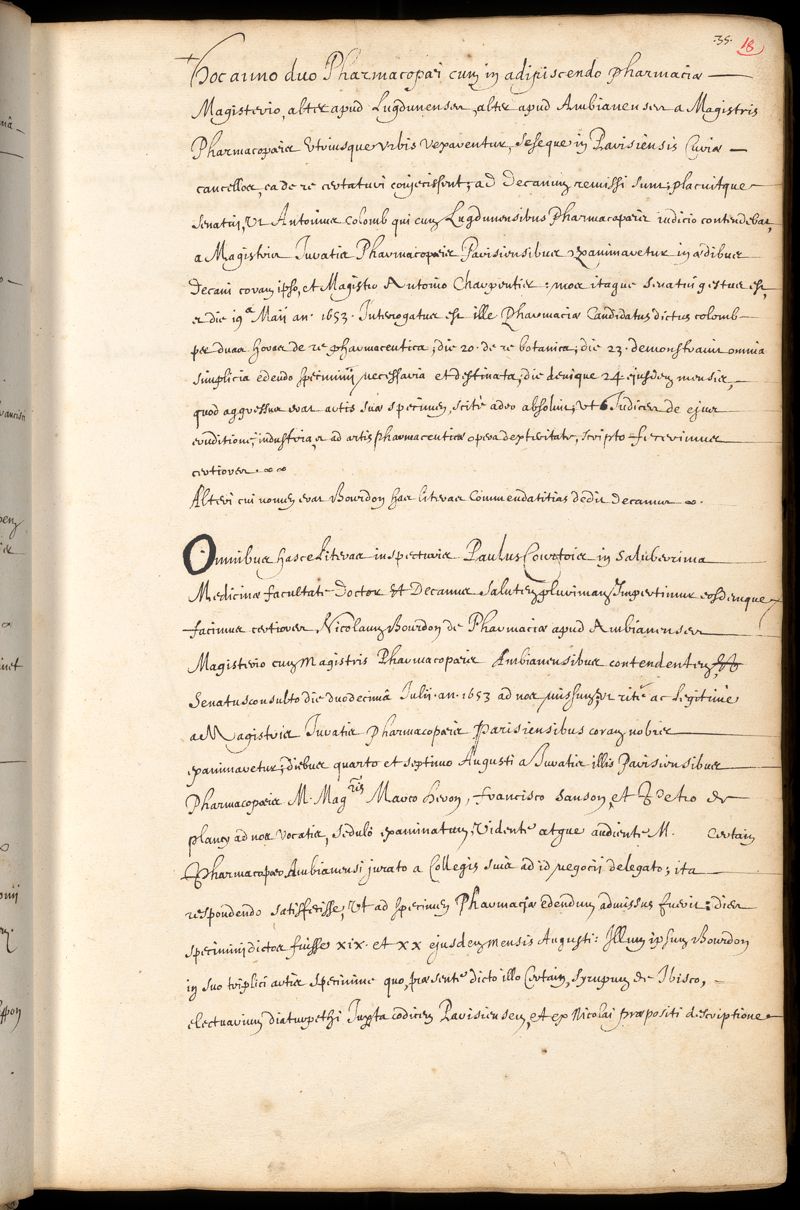 .35. 18
Hoc anno duo Pharmacopæi cum in adipiscendo pharmaciæ
Magisterio, alter apud Lugdunenses, alter apud Ambianenses a Magistris
Pharmacopæis Vtriusque vrbis vexarentur, seseque in Parisiensis Curiæ
cancellos, ea de re certaturi conjecissent; ad Decanum remissi sunt; placuitque
senatui, Vt Antonius Colomb qui cum Lugdunensibus Pharmacopæis iudicio contendebat,
a Magistris Juratis Pharmacopæis Parisiensibus examinaretur in ædibus
Decani coram ipso, et Magistro Antonio Charpentier: mos itaque senatui gestus est,
et die 19ª Maii an. 1653. Interrogatus est ille Pharmaciæ Candidatus dictus colomb
per duas horas de re pharmaceutica; die 20. de re botanica; die 23. demonstravit omnia
simplicia edendo specimini necessaria et destinata, die denique 24 ejusdem mensis,
quod aggressus erat artis suæ specimen, scitè adeo absolvit, Vt Judices de ejus
eruditione, industria, et ad artis pharmaceuticæ opera dexteritate, scripto fecerimus
certiores.
Alteri cui nomen erat Bourdon has literas Commendatitias dedit decanus.
Omnibus hasce Literas inspecturis Paulus Courtois in saluberrima
Medicinæ facultate Doctor et Decanus salutem plurimam Impertimur eosdemque
facimus certiores, Nicolaum Bourdon de Pharmaciæ apud Ambianenses
Magisterio cum Magistris Pharmacopæis Ambianensibus contendentem
Senatusconsulto die duodecimâ Julii. an. 1653 ad nos missum, Vt ritè ac legitimè
a Magistris Juratis pharmacopæis Parisiensibus coram nobis
examinaretur, diebus quarto et septimo Augusti a Juratis illis Parisiensibus
Pharmacopæis M. Magris Marco heron, francisco sanson, et Petro de
plancy ad nos vocatis, sedulò examinatum, Vidente atque audiente M. Certain
Pharmacopæo Ambianensi jurato a Collegis suis ad id negocii delegato; ita
respondendo satisfecisse, Vt ad specimen Pharmaciæ edendum admissus fuerit: dies
specimini dictos fuisse xix. et xx ejusdem mensis Augusti: Illum ipsum Bourdon
in suo triplici artis specimine quo, præsente dicto illo Certain, syrupum de Ibisco,
electuarium diaturpethi Juxta codicem Parisiensem, et ex Nicolai præpositi descriptione